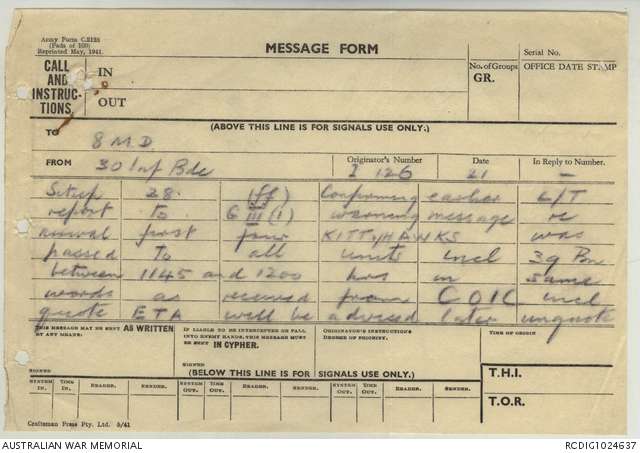 Army Form C.2128
(Pads of 100)
Reprinted May, 1941.
MESSAGE FORM
Serial No.
CALL
AND
INSTRUC-
TIONS.
IN
OUT
No. of Groups
GR.
OFFICE DATE STAMP
(ABOVE THIS LINE IS FOR SIGNALS USE ONLY.)
TO 8 M.D.
FROM 30 Inf Bde
Originator's Number
I 126
Date
21
In Reply to Number.
—
Sitrep 28. (ff) Confirming earlier L/T
report to G III (1) warning message re
arrival first four KITTYHAWKS was
passed to all units incl 39 Bn
between 1145 and 1200 hrs in same
words as received from COIC incl
quote ETA will be advised later unquote
THIS MESSAGE MAY BE SENT AS WRITTEN
BY ANY MEANS.
IF LIABLE TO BE INTERCEPTED OR FALL
INTO ENEMY HANDS, THIS MESSAGE MUST
BE SENT IN CYPHER.
ORIGINATOR'S INSTRUCTIONS
DEGREE OF PRIORITY.
TIME OF ORIGIN
SIGNED
SIGNED
(BELOW THIS LINE IS FOR SIGNALS USE ONLY.)
T.H.I.
SYSTEM IN. TIME IN. READER. SENDER. SYSTEM OUT. TIME OUT. READER. SENDER. SYSTEM OUT. TIME OUT. READER. SENDER.
T.O.R.
Craftsman Press Pty. Ltd. 5/41
AUSTRALIAN WAR MEMORIAL
RCDIG1024637